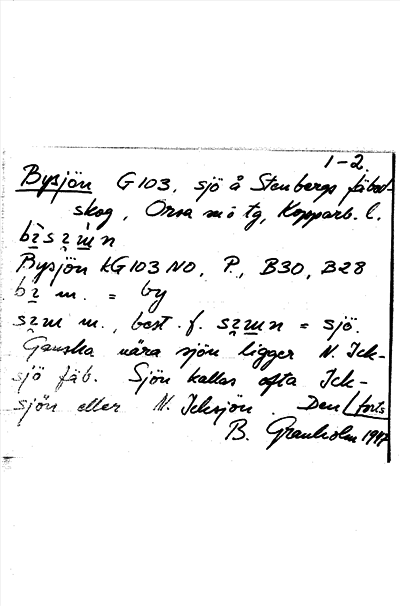 1-2.
Bysjön G 103, sjö å Stenbergs fäbod-
skog, Orsa sn o tg, Kopparb. l.
Bysjön KG 103 NO, P., B30, B28
m. = by
m., best. f. = sjö.
Ganska nära sjön ligger N. Ick-
sjö fäb. Sjön kallas ofta Ick-
sjön eller N. Icksjön. Den forts
B. Granholm 1947